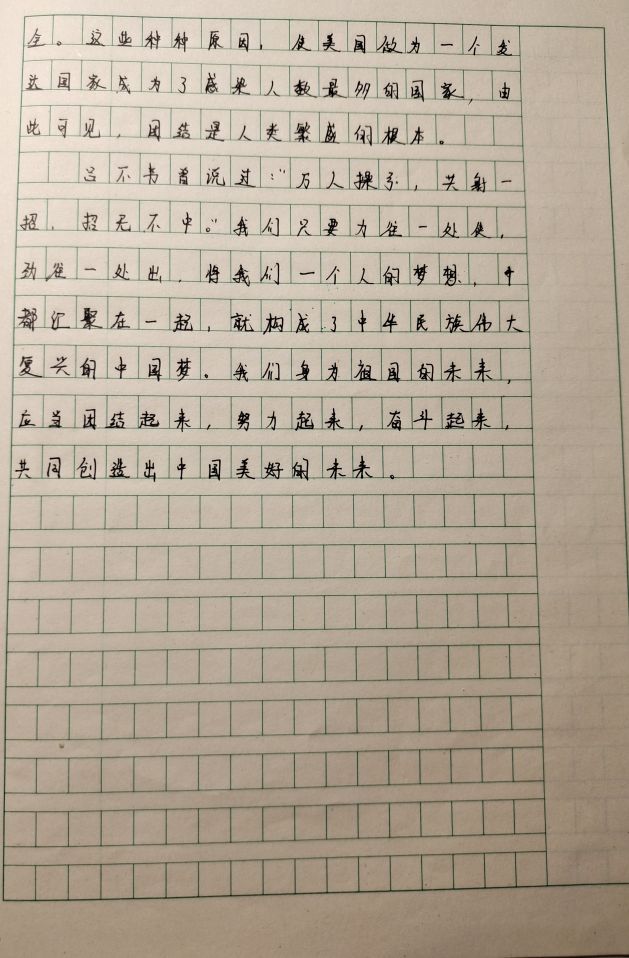 全。这些种种原因，使美国做为一个发
达国家成为了感染人数最多的国家，由
此可见，团结是人类繁盛的根本。
吕不韦曾说过：“万人操弓，共射一
招，招无不中。”我们只要力往一处使，
劲往一处出，将我们一个人的梦想，个
都汇聚在一起，就构成了中华民族伟大
复兴的中国梦。我们身为祖国的未来，
应当团结起来，努力起来，奋斗起来，
共同创造出中国美好的未来。